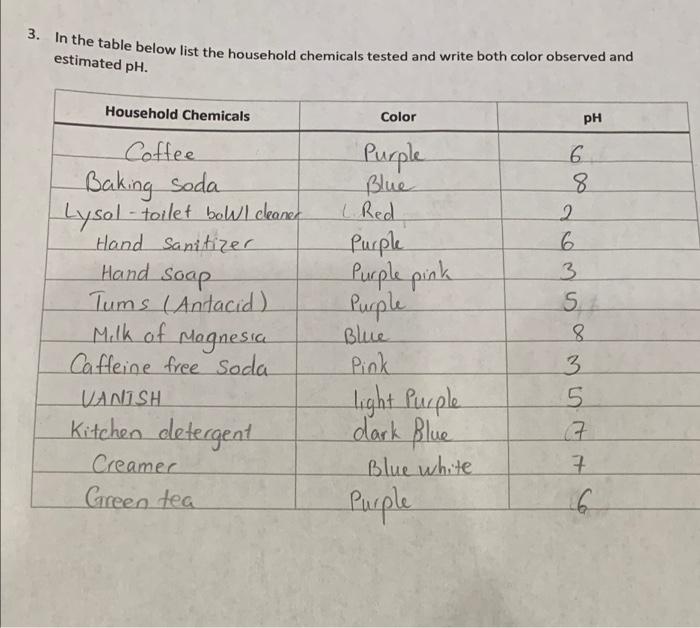 3. In the table below list the household chemicals tested and write both color observed and
estimated pH.
Household Chemicals Color pH
Coffee Purple 6
Baking soda Blue 8
Lysol - toilet bowl cleaner Red 2
Hand Sanitizer Purple 6
Hand soap Purple pink 3
Tums (Antacid) Purple 5
Milk of Magnesia Blue 8
Caffeine free soda Pink 3
VANISH light Purple 5
Kitchen detergent dark Blue 7
Creamer Blue white 7
Green tea Purple 6